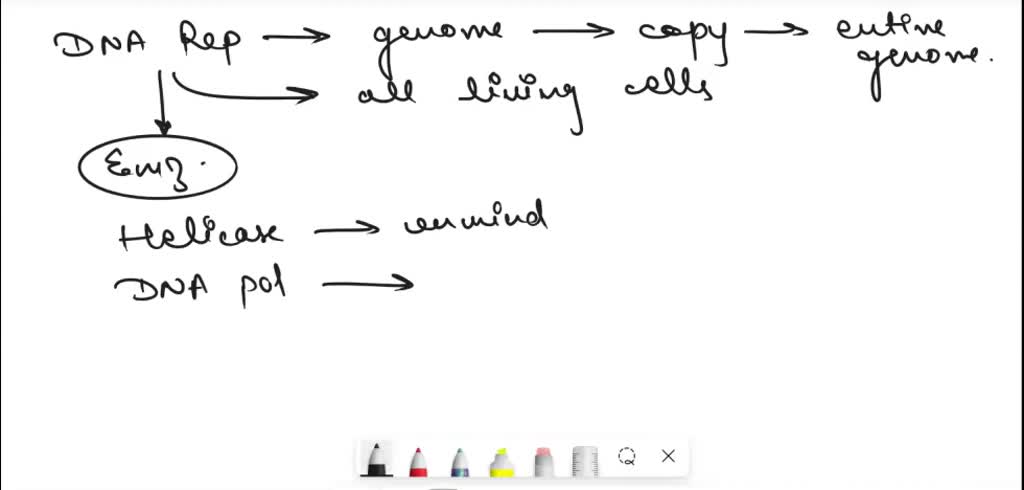 DNA Rep → genome → copy → entire genome.
all living cells
Enz.
Helicase → unwind
DNA pol →